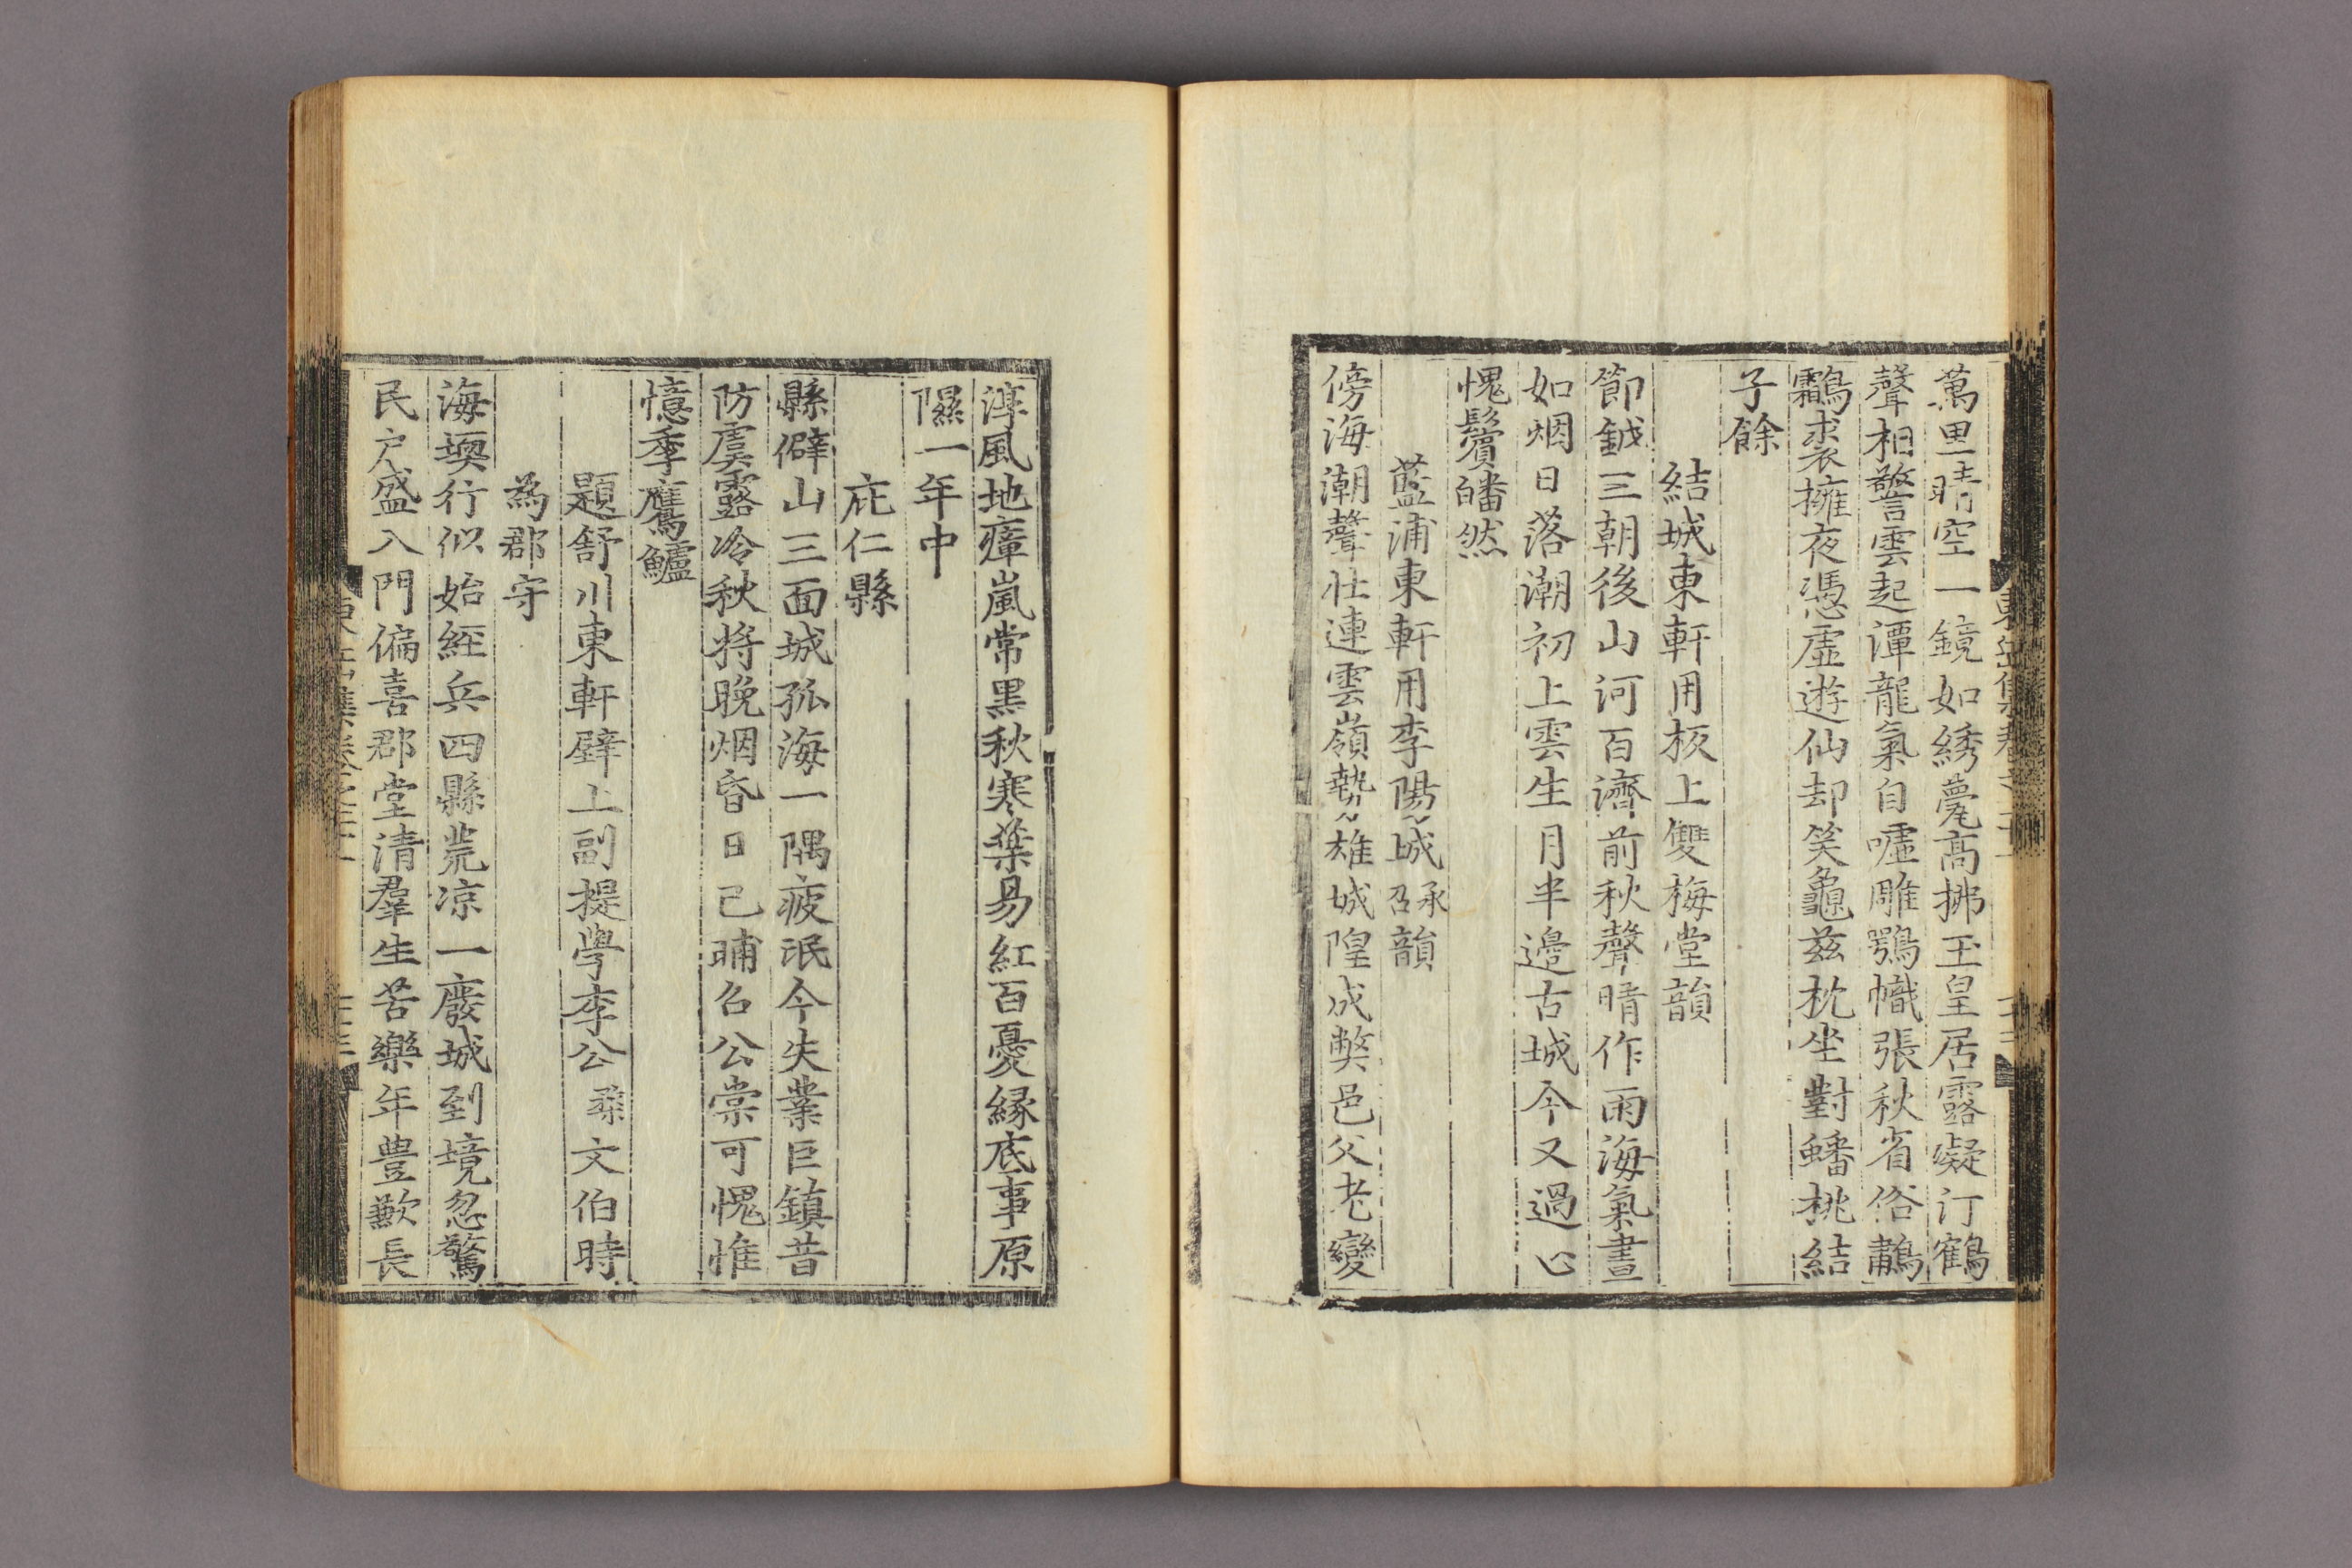 萬里晴空一鏡如綉甍高拂玉皇居露凝汀鶴
聲相警雲起潭龍氣自噓雕鶚幟張秋省俗鷫
鷞裘擁夜憑虛遊仙却笑龜玆枕坐對蟠桃結
子餘
結城東軒用板上雙梅堂韻
節鉞三朝後山河百濟前秋聲晴作雨海氣晝
如烟日落潮初上雲生月半邊古城今又過心
愧鬂皤然
藍浦東軒用李陽城承召韻
傍海潮聲壯連雲嶺勢雄城隍成弊邑父老變
淳風地瘴嵐常黑秋寒葉易紅百憂緣底事原
隰一年中
庇仁縣
縣僻山三面城孤海一隅疲氓今失業巨鎮昔
防虞露冷秋將晚烟昏日已晡召公棠可愧惟
憶季鷹鱸
題舒川東軒壁上副提學李公㙉文伯時
為郡守
海堧行似始經兵四縣荒凉一廢城到境忽驚
民戶盛入門偏喜郡堂清羣生苦樂年豊歉長